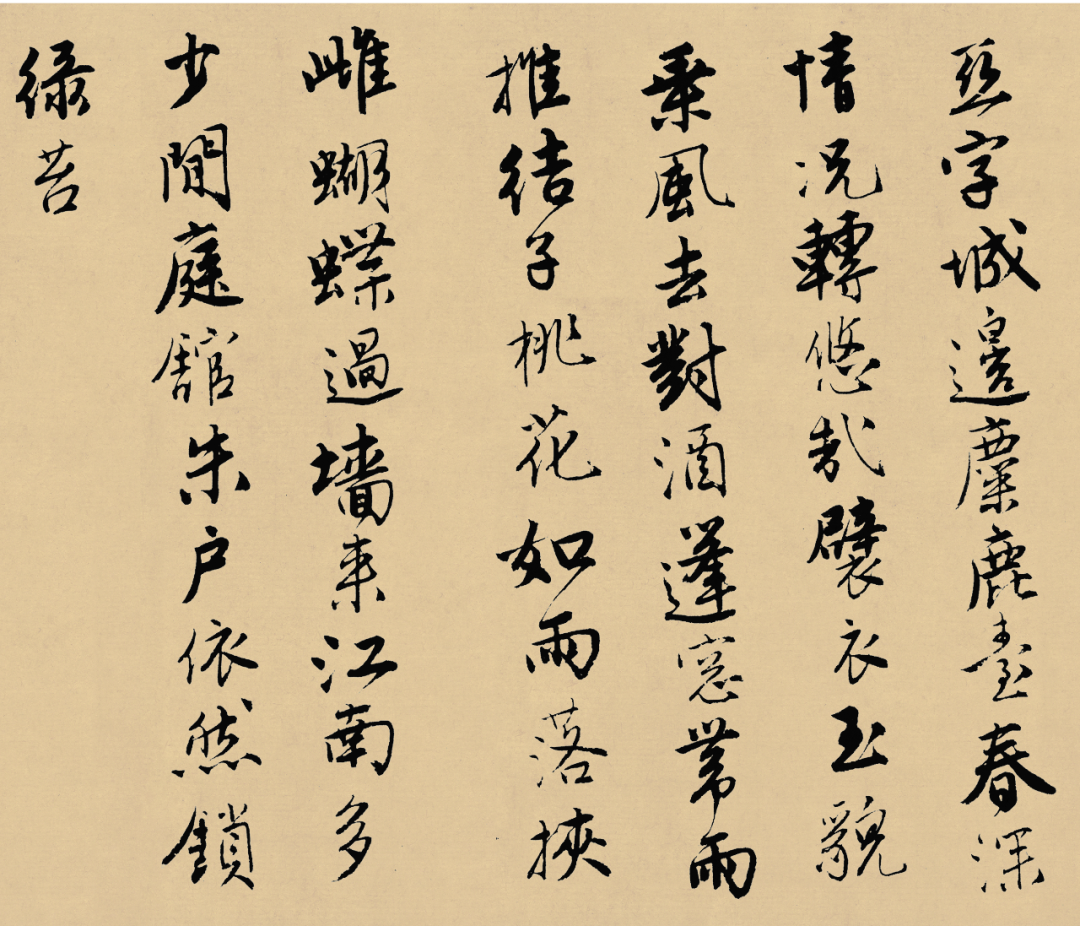 亞字城邊麋鹿臺春深
情況轉悠哉襞衣玉貌
乘風去對酒蓬窓帶雨
推結子桃花如雨落挾
雌蝴蝶過墻來江南多
少閒庭館朱户依然鎖
綠苔